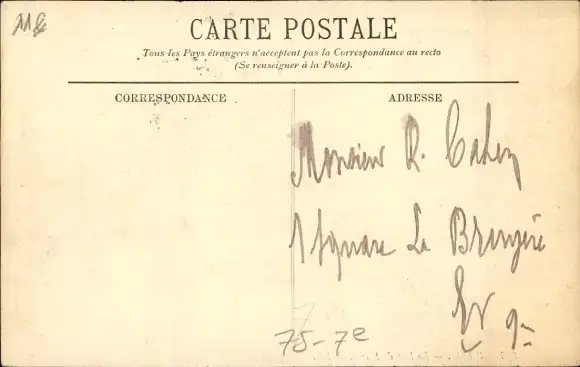 CARTE POSTALE
Tous les Pays étrangers n'acceptent pas la Correspondance au recto
(Se renseigner à la Poste).
CORRESPONDANCE
ADRESSE
Monsieur R. Cahen
1 Square La Bruyère
75-7e